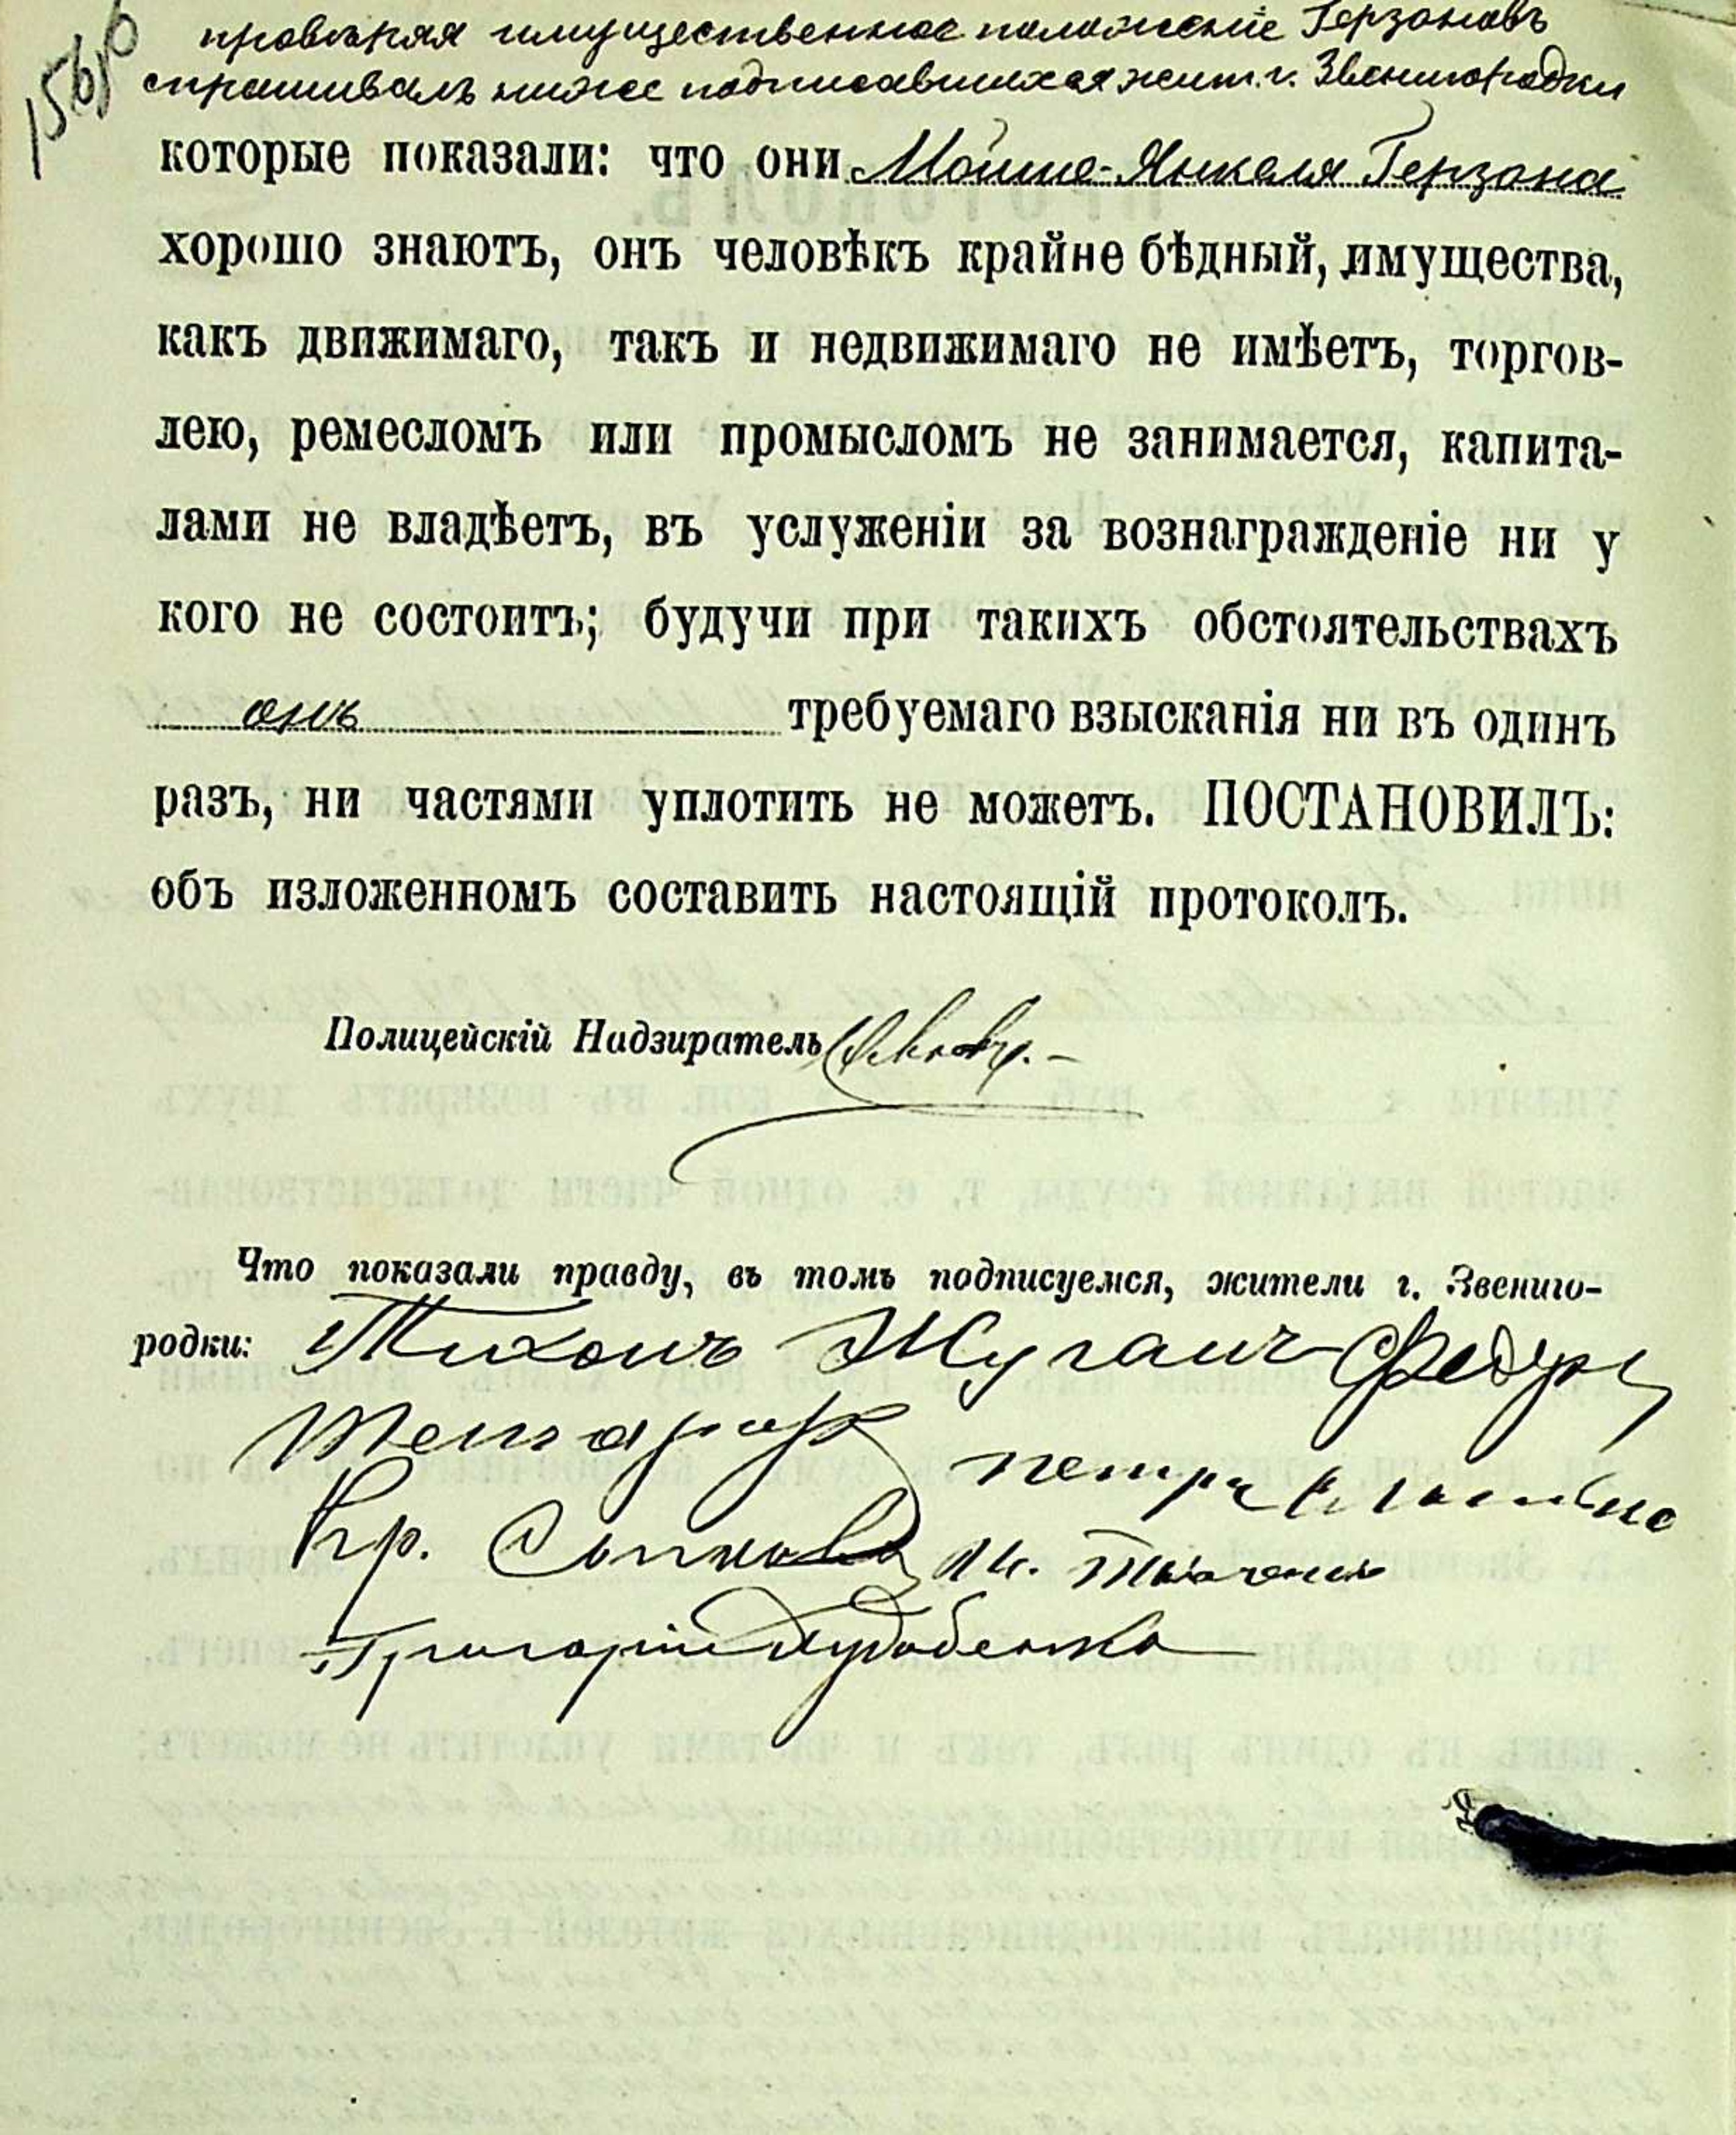 156об
провѣряя имущественное положеніе Герзоновъ
спрашивалъ ниже подписавшихся жит. г. Звенигородки
которые показали: что они Мошко-Янкеля Герзона
хорошо знаютъ, онъ человѣкъ крайне бѣдный, имущества,
какъ движимаго, такъ и недвижимаго не имѣетъ, торгов-
лею, ремесломъ или промысломъ не занимается, капита-
лами не владѣетъ, въ услуженіи за вознагражденіе ни у
кого не состоитъ; будучи при такихъ обстоятельствахъ
онъ требуемаго взысканія ни въ одинъ
разъ, ни частями уплотить не можетъ. ПОСТАНОВИЛЪ:
объ изложенномъ составить настоящій протоколъ.
Полицейскій Надзиратель
Что показали правду, въ томъ подписуемся, жители г. Звениго-
родки: Тихонъ Жуганъ Федоръ
Петръ
Кр.
Григорій